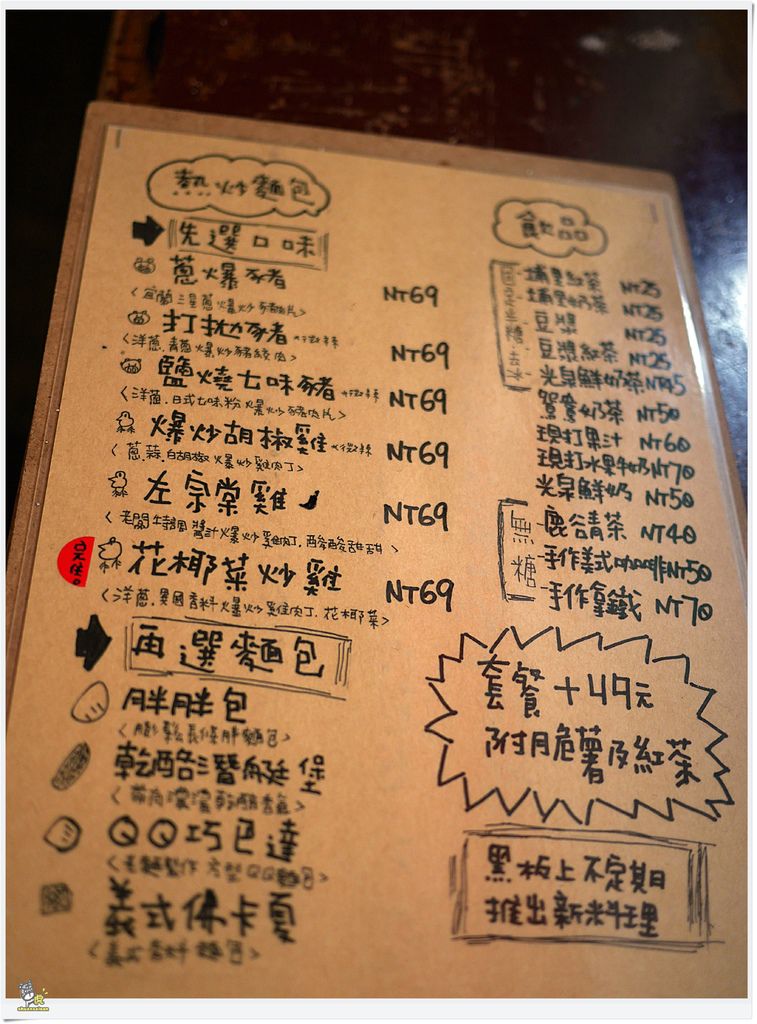 熱炒麵包
先選口味
蔥爆豬
NT69
<宜蘭三星蔥爆炒豬肉片>
打拋豬 *微辣
NT69
<洋蔥.青蔥爆炒豬絞肉>
鹽燒七味豬 *微辣
NT69
<洋蔥.日式七味粉爆炒豬肉片>
爆炒胡椒雞 *微辣
NT69
<蔥.蒜.白胡椒爆炒雞肉丁>
左宗棠雞
NT69
<老闆特調醬汁爆炒雞肉丁.酸酸甜甜>
花椰菜炒雞
NT69
<洋蔥.異國香料爆炒雞肉丁.花椰菜>
再選麵包
胖胖包
<膨鬆長條胖麵包>
乾酪潛艇堡
QQ巧巴達
<老麵製作 方型QQ麵包>
義式佛卡夏
<義式香料麵包>
飲品
埔里紅茶 NT25
埔里奶茶 NT25
豆漿 NT25
豆漿紅茶 NT25
光泉鮮奶茶 NT45
鴛鴦奶茶 NT50
現打果汁 NT60
現打水果牛奶 NT70
光泉鮮奶 NT50
無糖
鹿谷清茶 NT40
手作美式咖啡 NT50
手作拿鐵 NT70
套餐+49元
附脆薯及紅茶
黑板上不定期
推出新料理